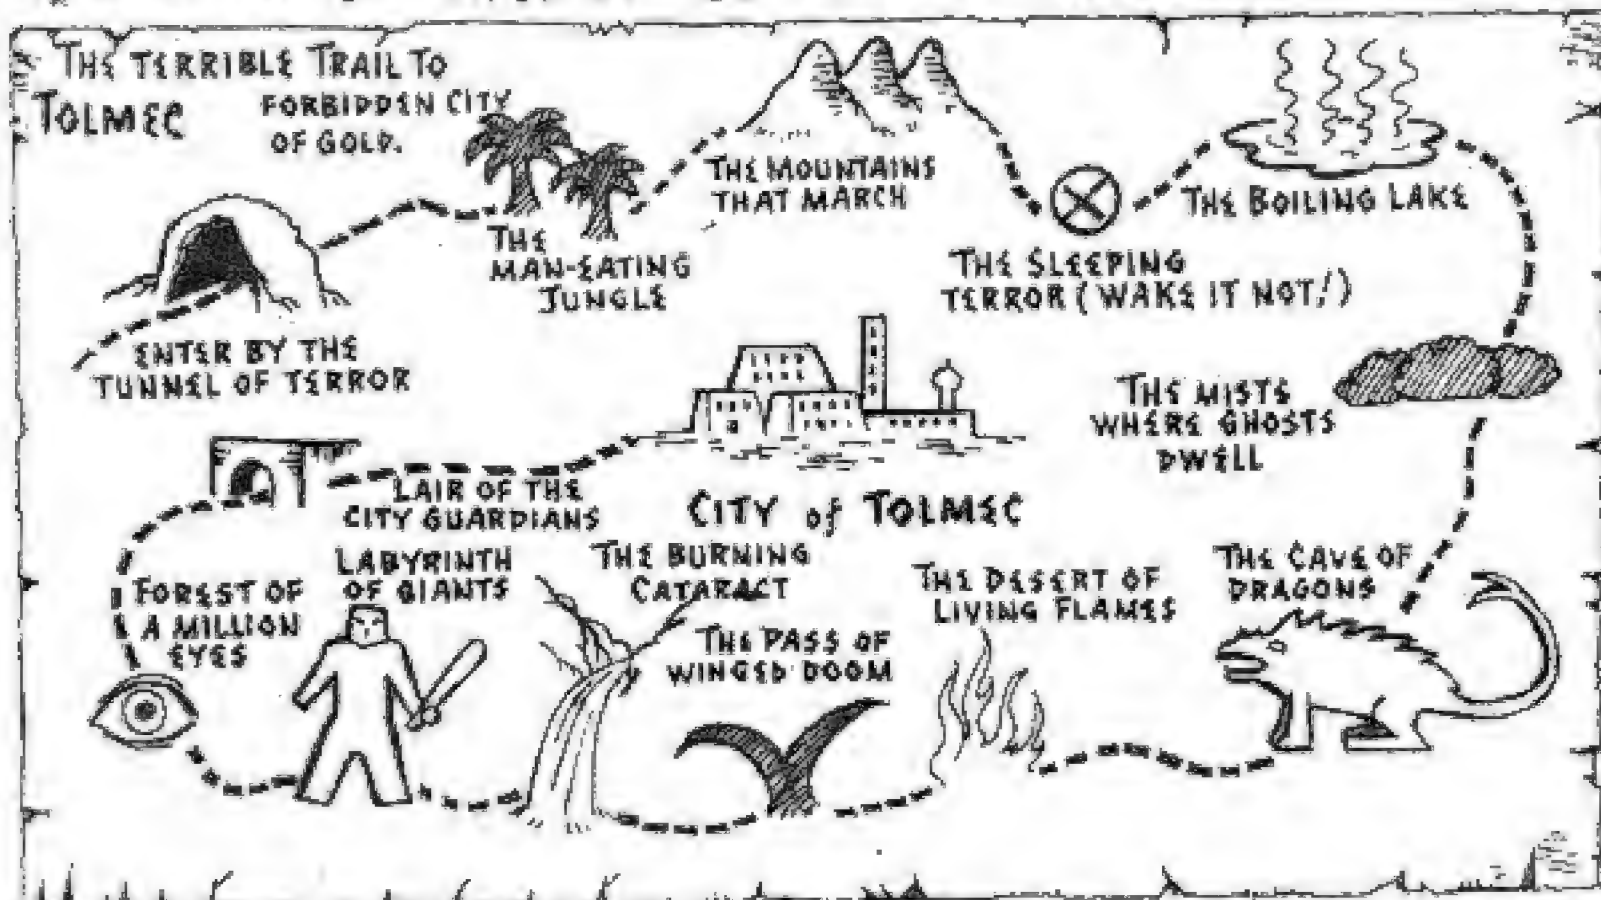 THE TERRIBLE TRAIL TO
TOLMEC
FORBIDDEN CITY
OF GOLD.
THE MOUNTAINS
THAT MARCH
THE BOILING LAKE
THE
MAN-EATING
JUNGLE
THE SLEEPING
TERROR (WAKE IT NOT!)
ENTER BY THE
TUNNEL OF TERROR
THE MISTS
WHERE GHOSTS
DWELL
LAIR OF THE
CITY GUARDIANS
CITY of TOLMEC
LABYRINTH
OF GIANTS
THE BURNING
CATARACT
THE DESERT OF
LIVING FLAMES
THE CAVE OF
DRAGONS
FOREST OF
A MILLION
EYES
THE PASS OF
WINGED DOOM